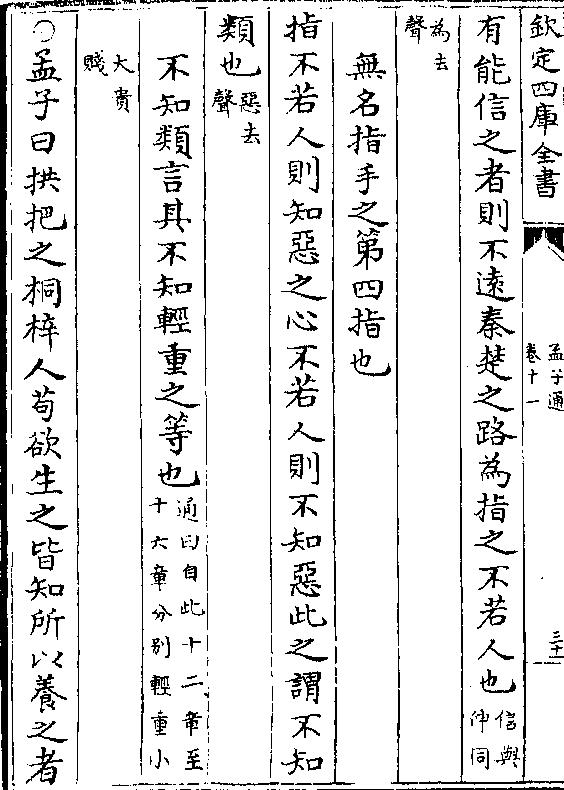 欽定四庫全書
孟子通
卷十一
三十
有能信之者則不遠秦楚之路為指之不若人也信與伸同
為去聲
無名指手之第四指也
指不若人則知惡之心不若人則不知惡此之謂不知
類也惡去聲
不知類言其不知輕重之等也通曰自此十二章至十六章分别輕重小
大貴賤
○孟子曰拱把之桐梓人苟欲生之皆知所以養之者